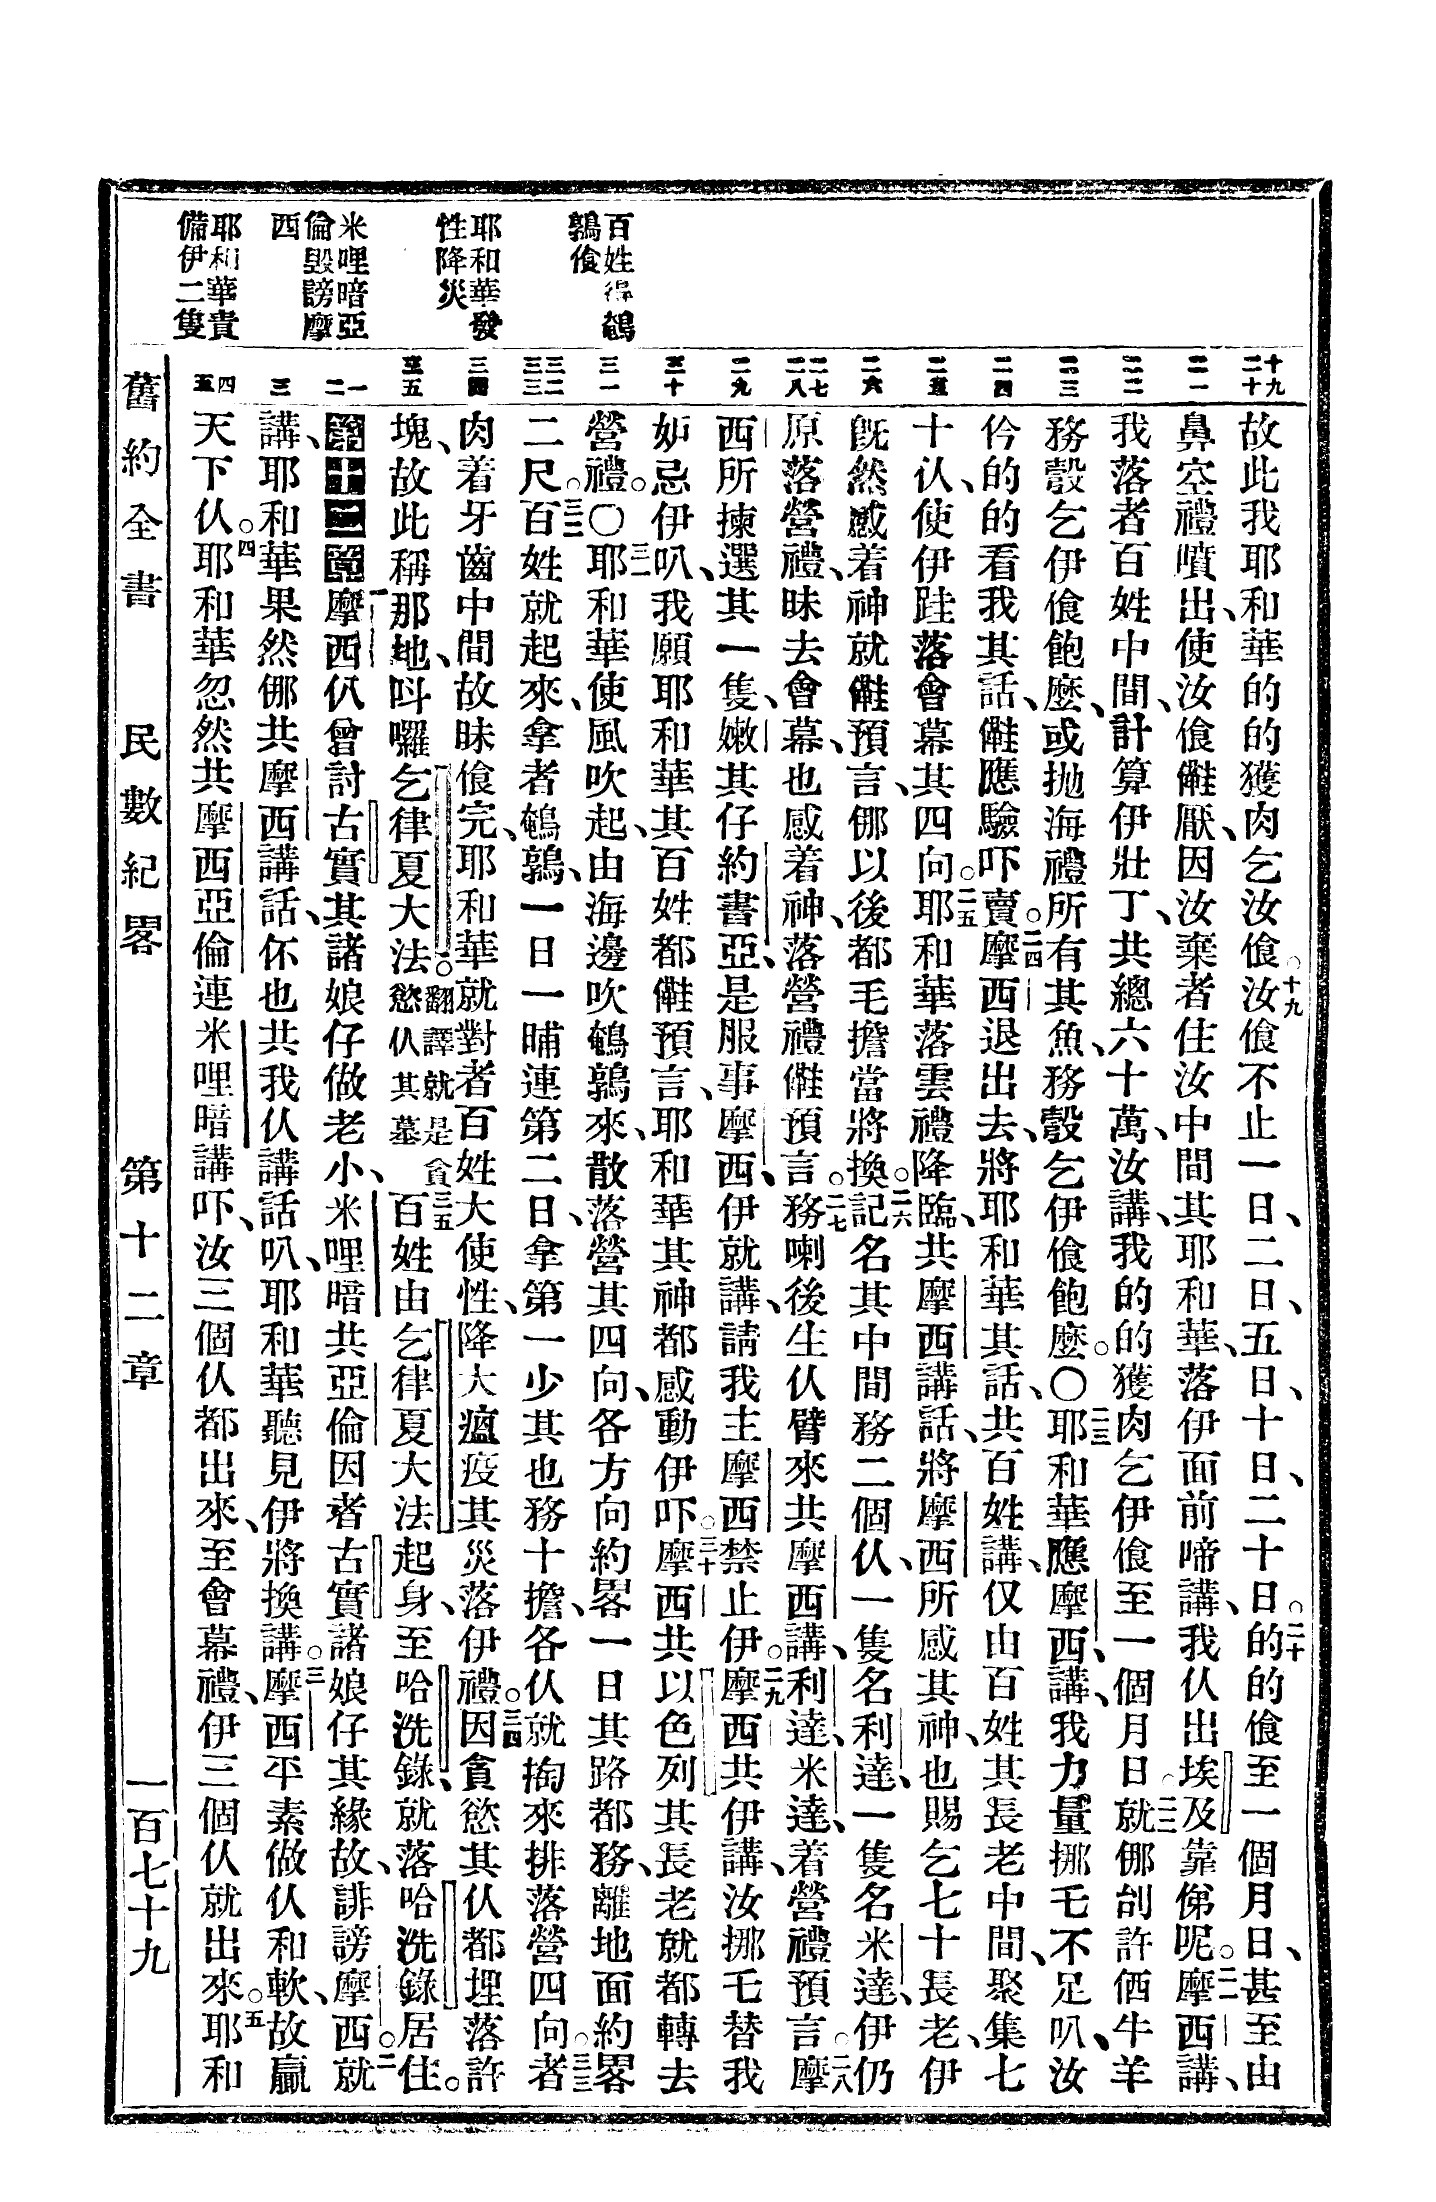 百姓得鵪
鶉飧
耶和華發
性降災
米哩暗亞
倫毀謗摩
西
耶和華責
備伊二隻
十九
二十
二一
二二
二三
二四
二五
二六
二七
二八
二九
三十
三一
三二
三三
三四
三五
一
二
三
四
五
故此我耶和華的的獲肉乞汝飧。十九汝飧不止一日、二日、五日、十日、二十日。二十的的飧至一個月日、甚至由
鼻空禮噴出、使汝飧𣍐厭、因汝棄者住汝中間其耶和華、落伊面前啼講、我仈出埃及靠俤呢。二一摩西講、
我落者百姓中間、計算伊壯丁、共總六十萬、汝講、我的的獲肉乞伊飧至一個月日。二二就㑚刣許俹牛羊
務彀乞伊飧飽麽、或拋海禮所有其魚、務彀乞伊飧飽麽。〇二三耶和華應摩西講、我力量挪乇不足叭、汝
仱的的看我其話、𣍐應驗吓賣。二四摩西退出去、將耶和華其話、共百姓講、仅由百姓其長老中間、聚集七
十仈、使伊跬落會幕其四向。二五耶和華落雲禮降臨、共摩西講話、將摩西所感其神、也賜乞七十長老、伊
旣然感着神就𣍐預言、㑚以後都毛擔當將換。二六記名其中間務二個仈、一隻名利達、一隻名米達、伊仍
原落營禮、昧去會幕、也感着神、落營禮𣍐預言。二七務喇後生仈臂來共摩西講、利達、米達、着營禮預言。二八摩
西所揀選其一隻、嫩其仔約書亞、是服事摩西、伊就講、請我主摩西禁止伊。二九摩西共伊講、汝挪乇替我
妒忌伊叭、我願耶和華其百姓都𣍐預言、耶和華其神都感動伊吓。三十摩西共以色列其長老就都轉去
營禮。〇三一耶和華使風吹起、由海邊吹鵪鶉來、散落營其四向、各方向約畧一日其路都務、離地面約畧
二尺。三二百姓就起來、拿者鵪鶉、一日一晡連第二日、拿第一少其也務十擔、各仈就掏來排落營四向。三三者
肉着牙齒中間、故昧飧完、耶和華就對者百姓大使性、降大瘟疫其災落伊禮。三四因貪慾其仈都埋落許
塊、故此稱那地、呌囉乞律夏大法。翻譯就是貪慾仈其墓三五百姓由乞律夏大法起身、至哈洗錄、就落哈洗錄居住。
第十二章一摩西仈曾討古實其諸娘仔做老小、米哩暗共亞倫因者古實諸娘仔其緣故、誹謗摩西。二就
講、耶和華果然㑚共摩西講話、伓也共我仈講話叭、耶和華聽見伊將換講。三摩西平素做仈和軟、故贏
天下仈。四耶和華忽然共摩西亞倫連米哩暗講吓、汝三個仈都出來、至會幕禮、伊三個仈就出來。五耶和
舊約全書　民數紀畧　第十二章　一百七十九